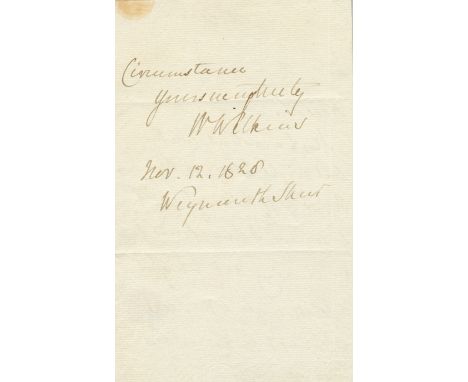 Circumstance
Yours very truly
W Wilkins
Nov. 12. 1828
Weymouth Street